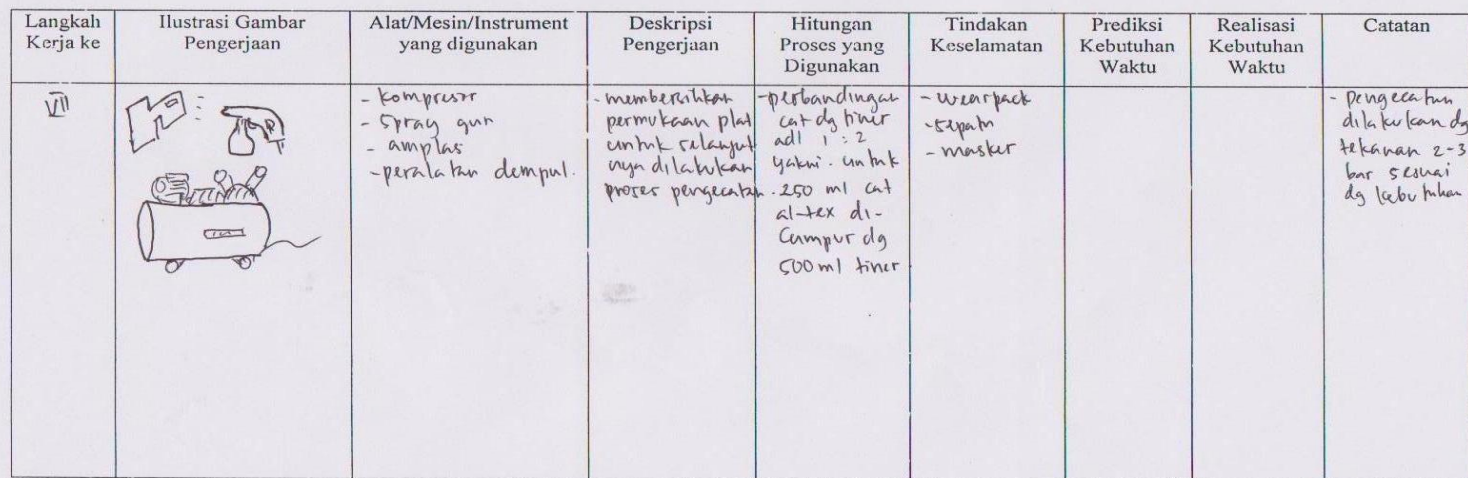 Langkah
Kerja ke
Ilustrasi Gambar
Pengerjaan
Alat/Mesin/Instrument
yang digunakan
Deskripsi
Pengerjaan
Hitungan
Proses yang
Digunakan
Tindakan
Keselamatan
Prediksi
Kebutuhan
Waktu
Realisasi
Kebutuhan
Waktu
Catatan
VII
- kompresor
- spray gun
- amplas
- peralatan dempul.
- membersihkan
permukaan plat
untuk selanjut
nya dilakukan
proses pengecatan.
- perbandingan
cat dg tiner
adl 1 : 2
yakni. untuk
250 ml cat
al-tex di-
campur dg
500 ml tiner
- wearpack
- sepatu
- masker
- Pengecatan
dilakukan dg
tekanan 2-3
bar sesuai
dg kebutuhan